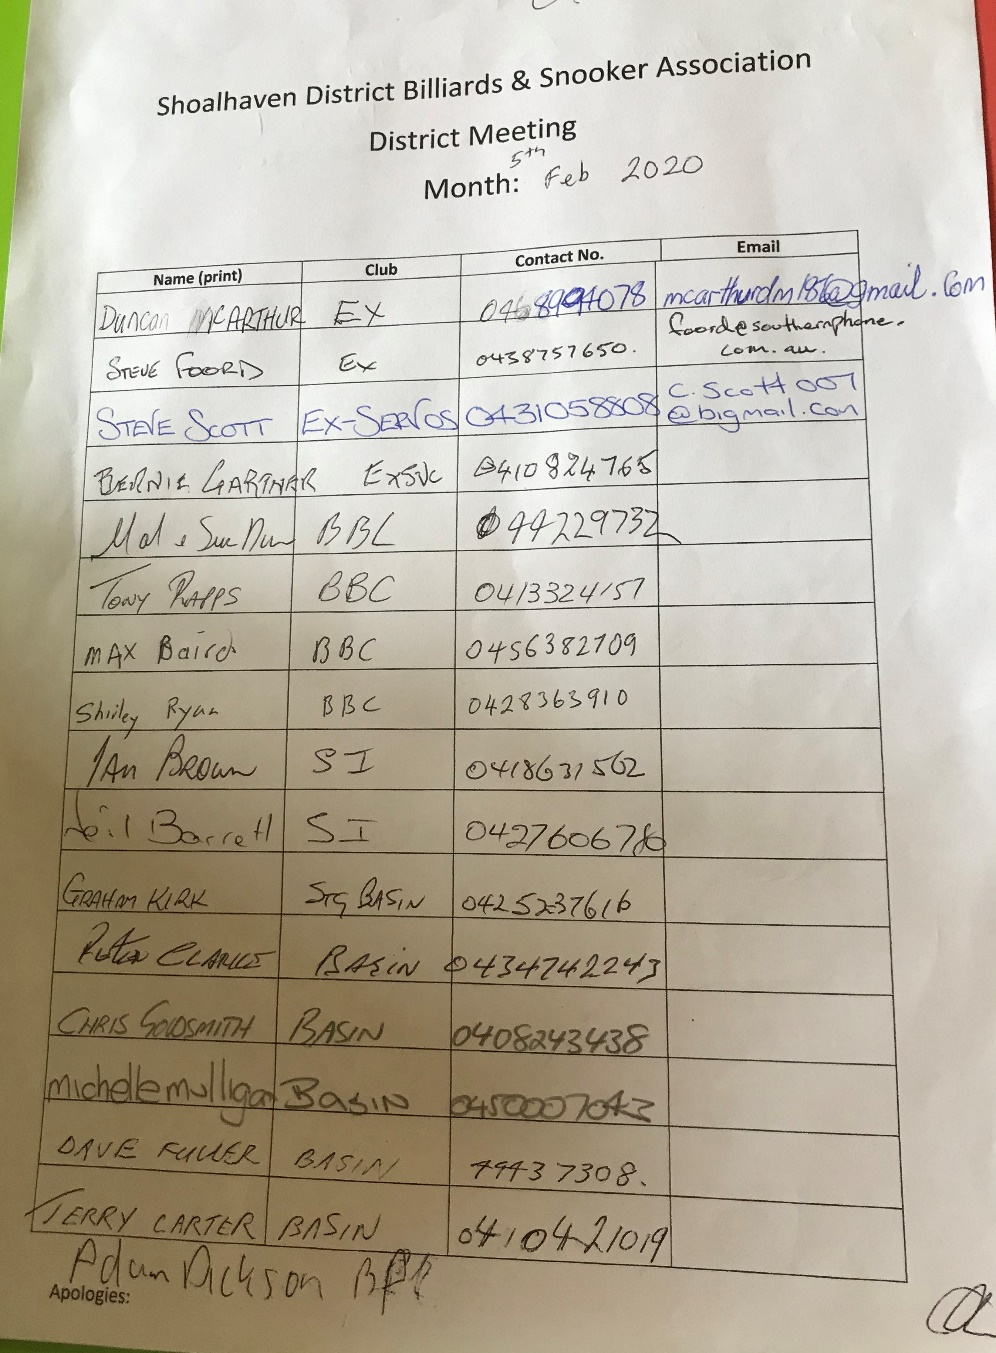 Shoalhaven District Billiards & Snooker Association
District Meeting
5th
Month: Feb 2020
Name (print) Club Contact No. Email
Duncan MCARTHUR EX mcarthurdm186@gmail.com
STEVE FOORD Ex 0438757650. foord@southernphone.
com.au.
STEVE SCOTT EX-SERVOS 0431058808 C.Scott007
@bigmail.com
BERNIE GARTNAR EXSVC 0410824765
Mal & Sue Dun BBC 44229732
TONY RAPPS BBC 0413324157
MAX Baird BBC 0456382709
Shirley Ryan BBC 0428363910
IAN BROWN SI 0418631562
Neil Barrett SI 0427606780
GRAHAM KIRK STG BASIN 0425237616
Peter CLARKE BASIN 0434742243
CHRIS GOLDSMITH BASIN 0408243438
michelle mulligan BASIN 0450007043
DAVE FULLER BASIN 44437308.
TERRY CARTER BASIN 0410421019
Adam Dickson
Apologies: